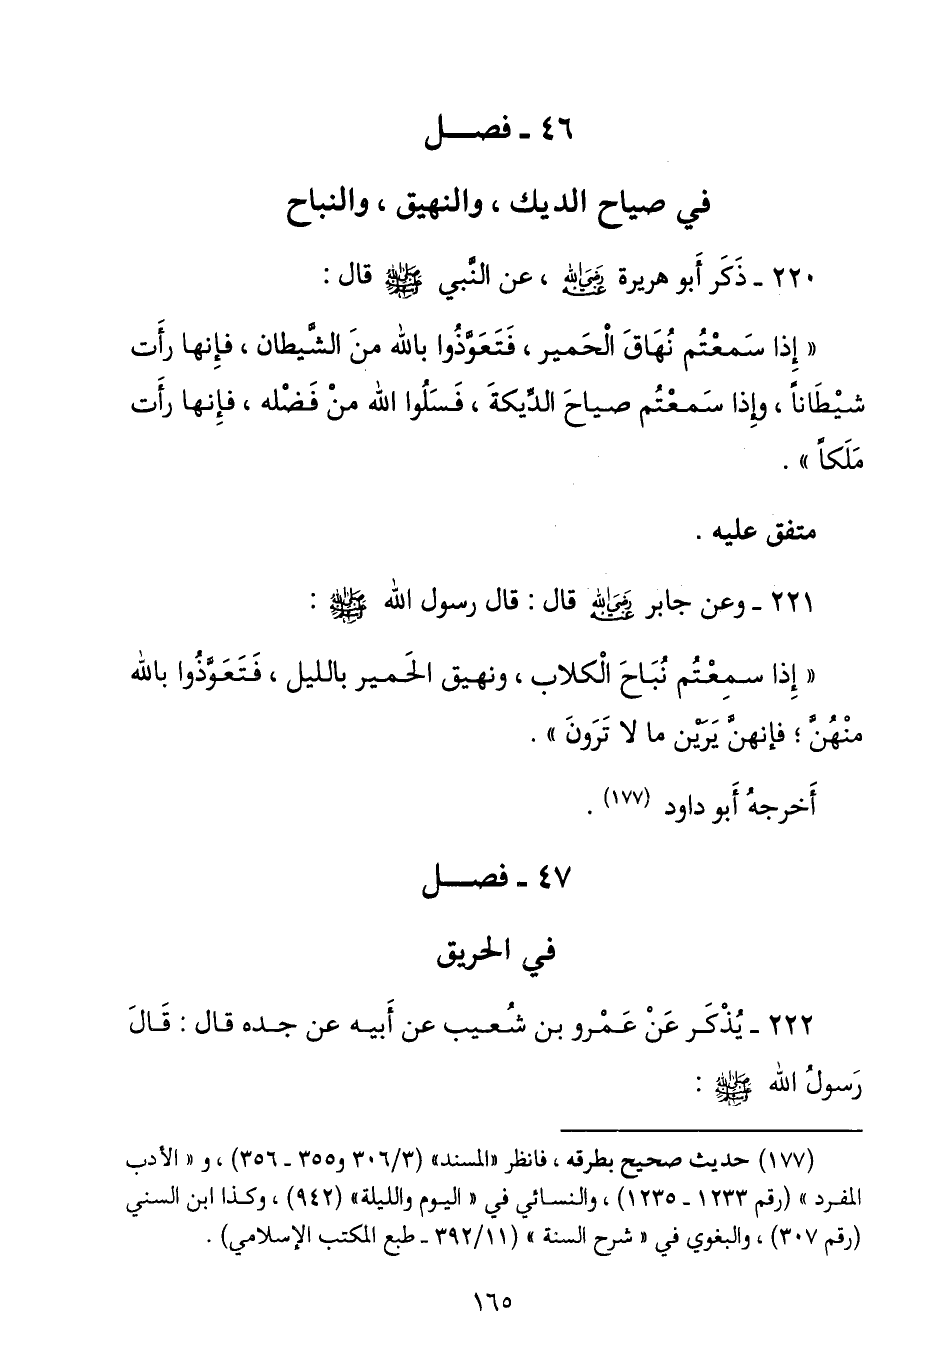 ٤٦ ـ فصـــل
في صياح الديك ، والنهيق ، والنباح
٢٢٠ ـ ذَكَر أَبو هريرة رَضِيَ اللهُ عَنْهُ ، عن النَّبي ﷺ قال :
« إِذا سَمعْتُم نُهَاقَ الْحَمير ، فَتَعَوَّذُوا بالله منَ الشَّيطان ، فإِنها رأَت
شيْطَاناً ، وإِذا سَمعْتُم صياحَ الدِّيكةَ ، فَسَلُوا الله منْ فَضْله ، فإِنها رأَت
مَلَكاً » .
متفق عليه .
٢٢١ ـ وعن جابر رَضِيَ اللهُ عَنْهُ قال : قال رسول الله ﷺ :
« إِذا سمِعْتُم نُبَاحَ الْكلاب ، ونهيق الحَمير بالليل ، فَتَعَوَّذُوا بالله
منْهُنَّ ؛ فإنهنَّ يَرَيْن ما لا تَرَونَ » .
أَخرجهُ أَبو داود (١٧٧) .
٤٧ ـ فصـــل
في الحريق
٢٢٢ ـ يُذْكَر عَنْ عَمْرو بن شُعيب عن أَبيه عن جده قال : قَالَ
رَسولُ الله ﷺ :
(١٧٧) حديث صحيح بطرقه ، فانظر «المسند» (٣٠٦/٣ و٣٥٥ ـ ٣٥٦) ، و « الأدب
المفرد » (رقم ١٢٣٣ ـ ١٢٣٥) ، والنسائي في « اليوم والليلة» (٩٤٢) ، وكذا ابن السني
(رقم ٣٠٧) ، والبغوي في « شرح السنة » (٣٩٢/١١ ـ طبع المكتب الإسلامي) .
١٦٥